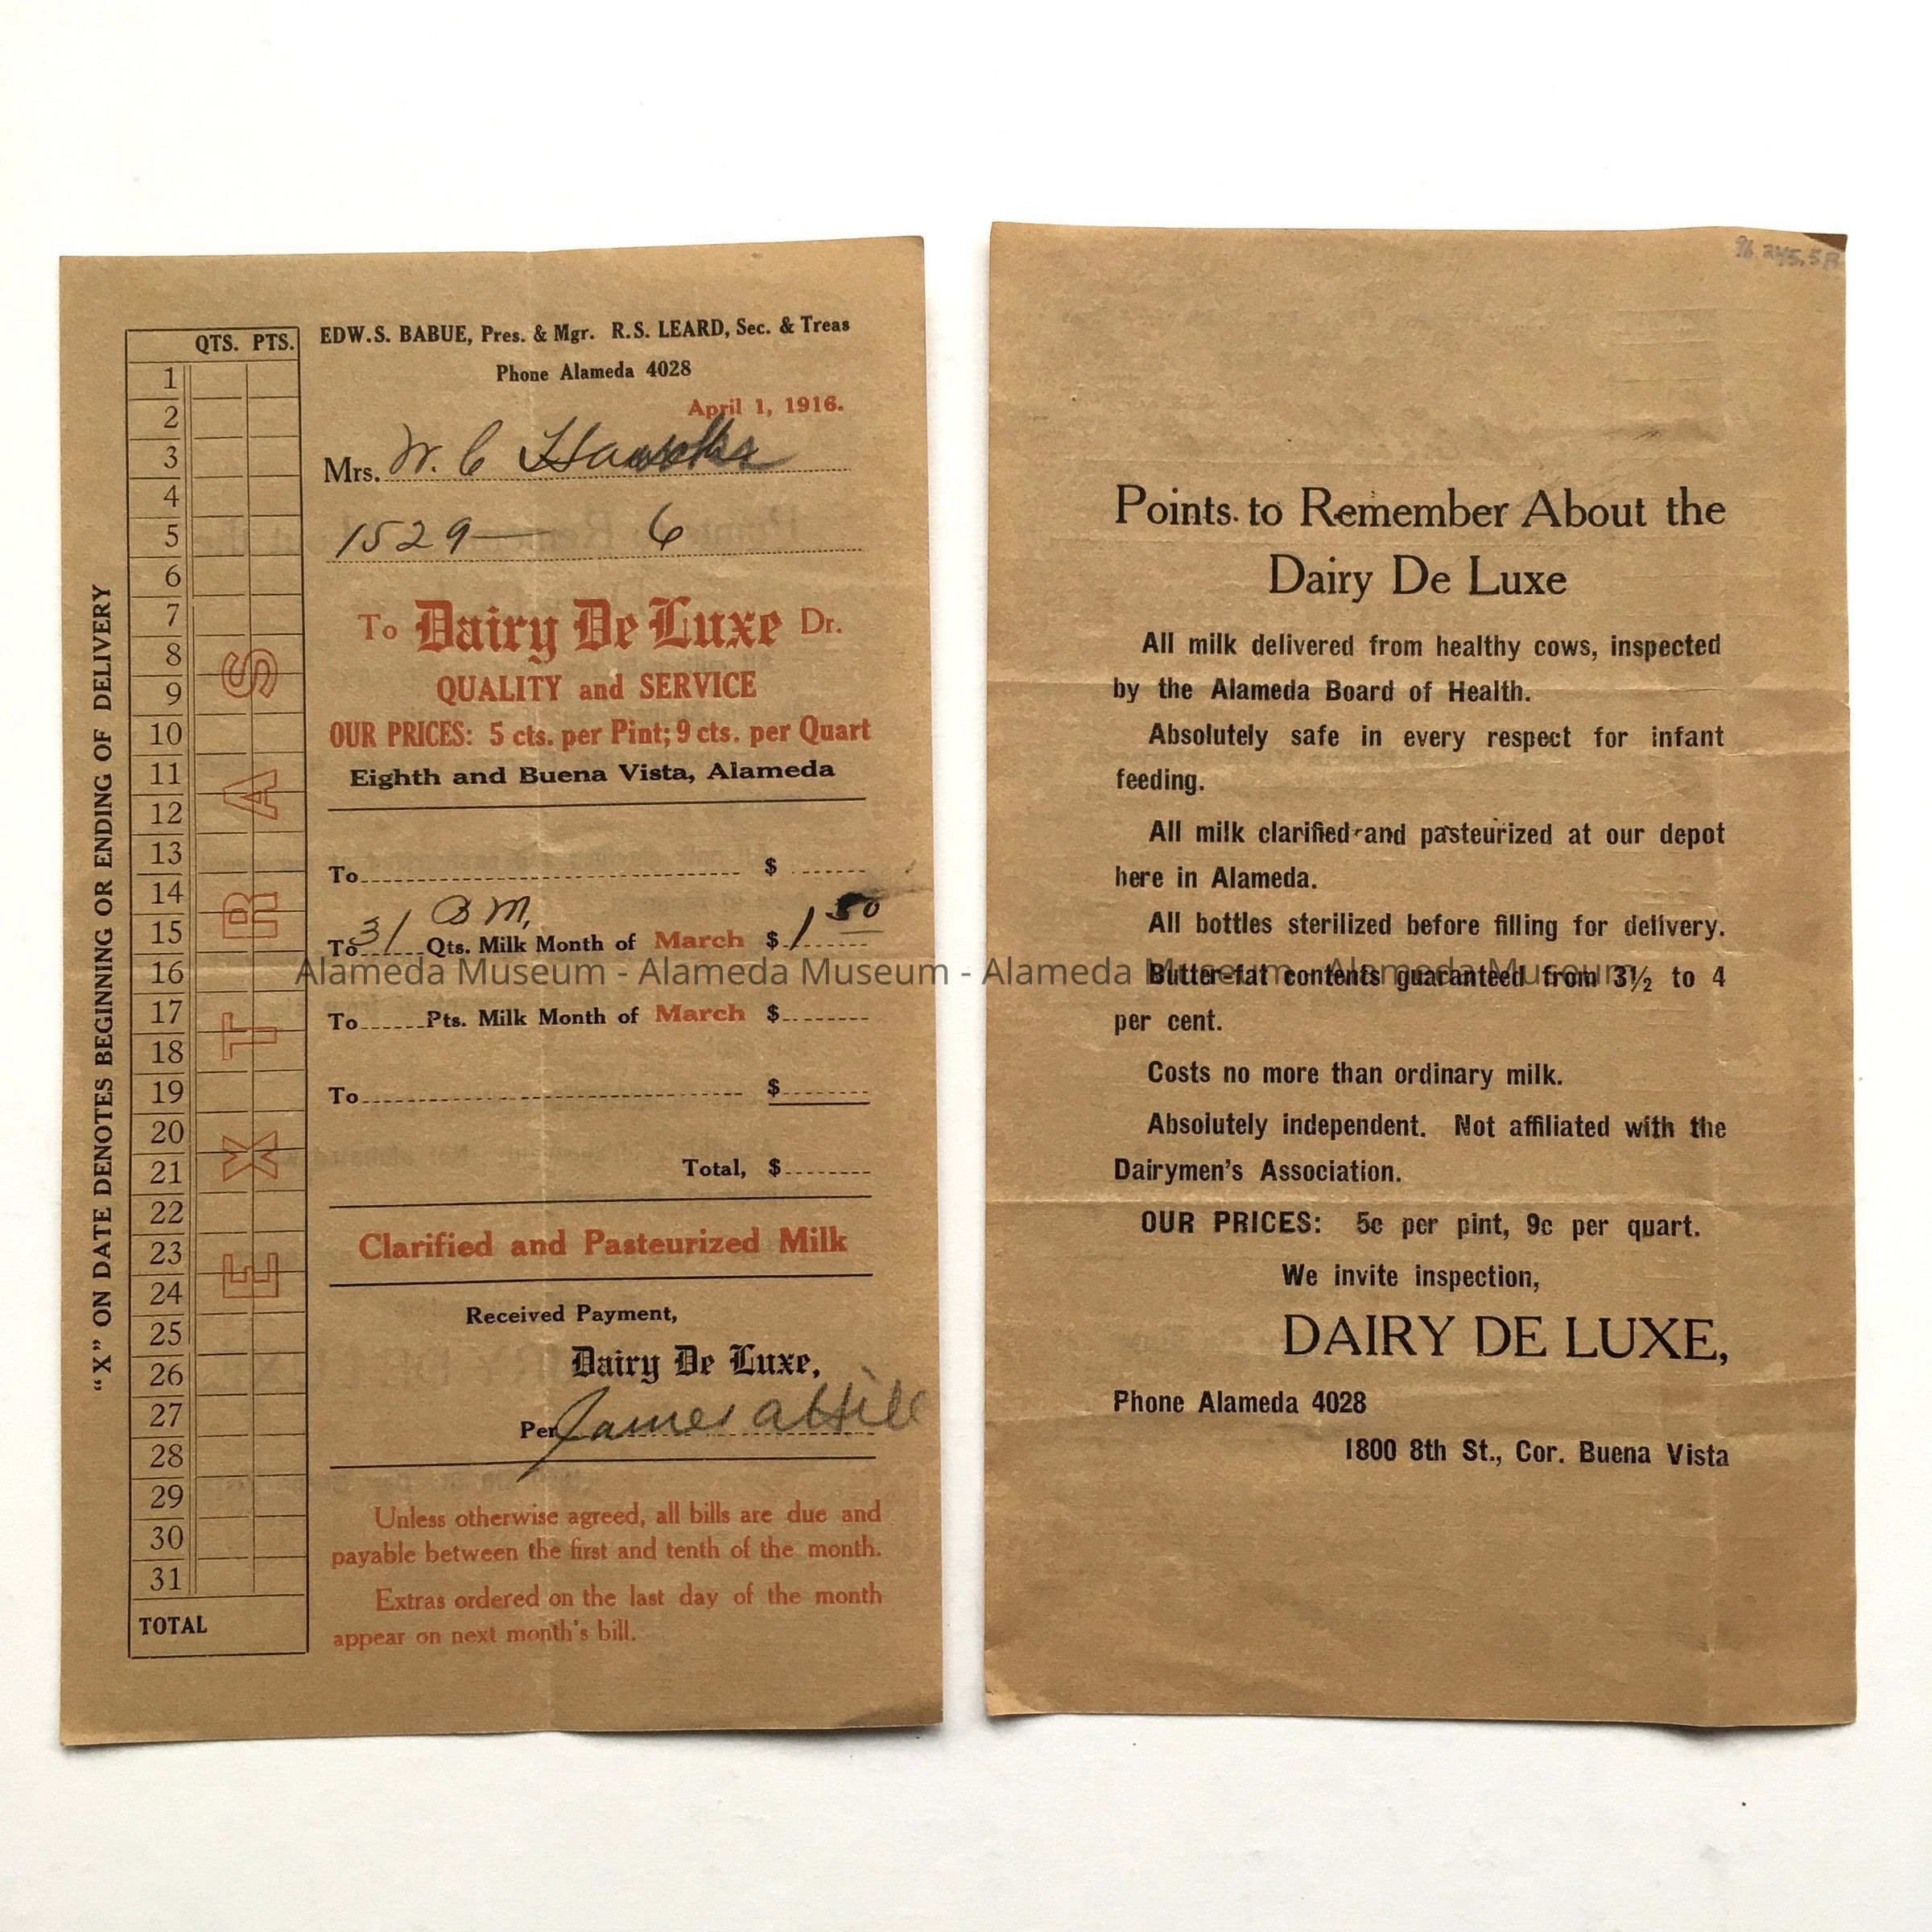 QTS. PTS.
1
2
3
4
5
6
7
8
9
10
11
12
13
14
15
16
17
18
19
20
21
22
23
24
25
26
27
28
29
30
31
TOTAL
EXTRAS
"X" ON DATE DENOTES BEGINNING OR ENDING OF DELIVERY
EDW.S. BABUE, Pres. & Mgr. R.S. LEARD, Sec. & Treas
Phone Alameda 4028
April 1, 1916.
Mrs. W. C
1529 — 6
To Dairy De Luxe Dr.
QUALITY and SERVICE
OUR PRICES: 5 cts. per Pint; 9 cts. per Quart
Eighth and Buena Vista, Alameda
To $
B M,
To 31 Qts. Milk Month of March $ 1 50
To Pts. Milk Month of March $
To $
Total, $
Clarified and Pasteurized Milk
Received Payment,
Dairy De Luxe,
Per James A Hill
Unless otherwise agreed, all bills are due and
payable between the first and tenth of the month.
Extras ordered on the last day of the month
appear on next month's bill.
Alameda Museum - Alameda Museum - Alameda Museum - Alameda Museum
Points to Remember About the
Dairy De Luxe
All milk delivered from healthy cows, inspected
by the Alameda Board of Health.
Absolutely safe in every respect for infant
feeding.
All milk clarified and pasteurized at our depot
here in Alameda.
All bottles sterilized before filling for delivery.
Butter-fat contents guaranteed from 3½ to 4
per cent.
Costs no more than ordinary milk.
Absolutely independent. Not affiliated with the
Dairymen's Association.
OUR PRICES: 5c per pint, 9c per quart.
We invite inspection,
DAIRY DE LUXE,
Phone Alameda 4028
1800 8th St., Cor. Buena Vista